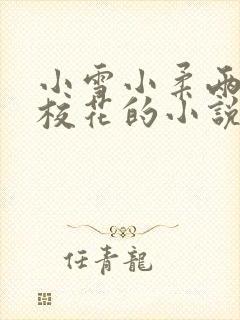 小雪小柔兩
校花的小說
任青龍